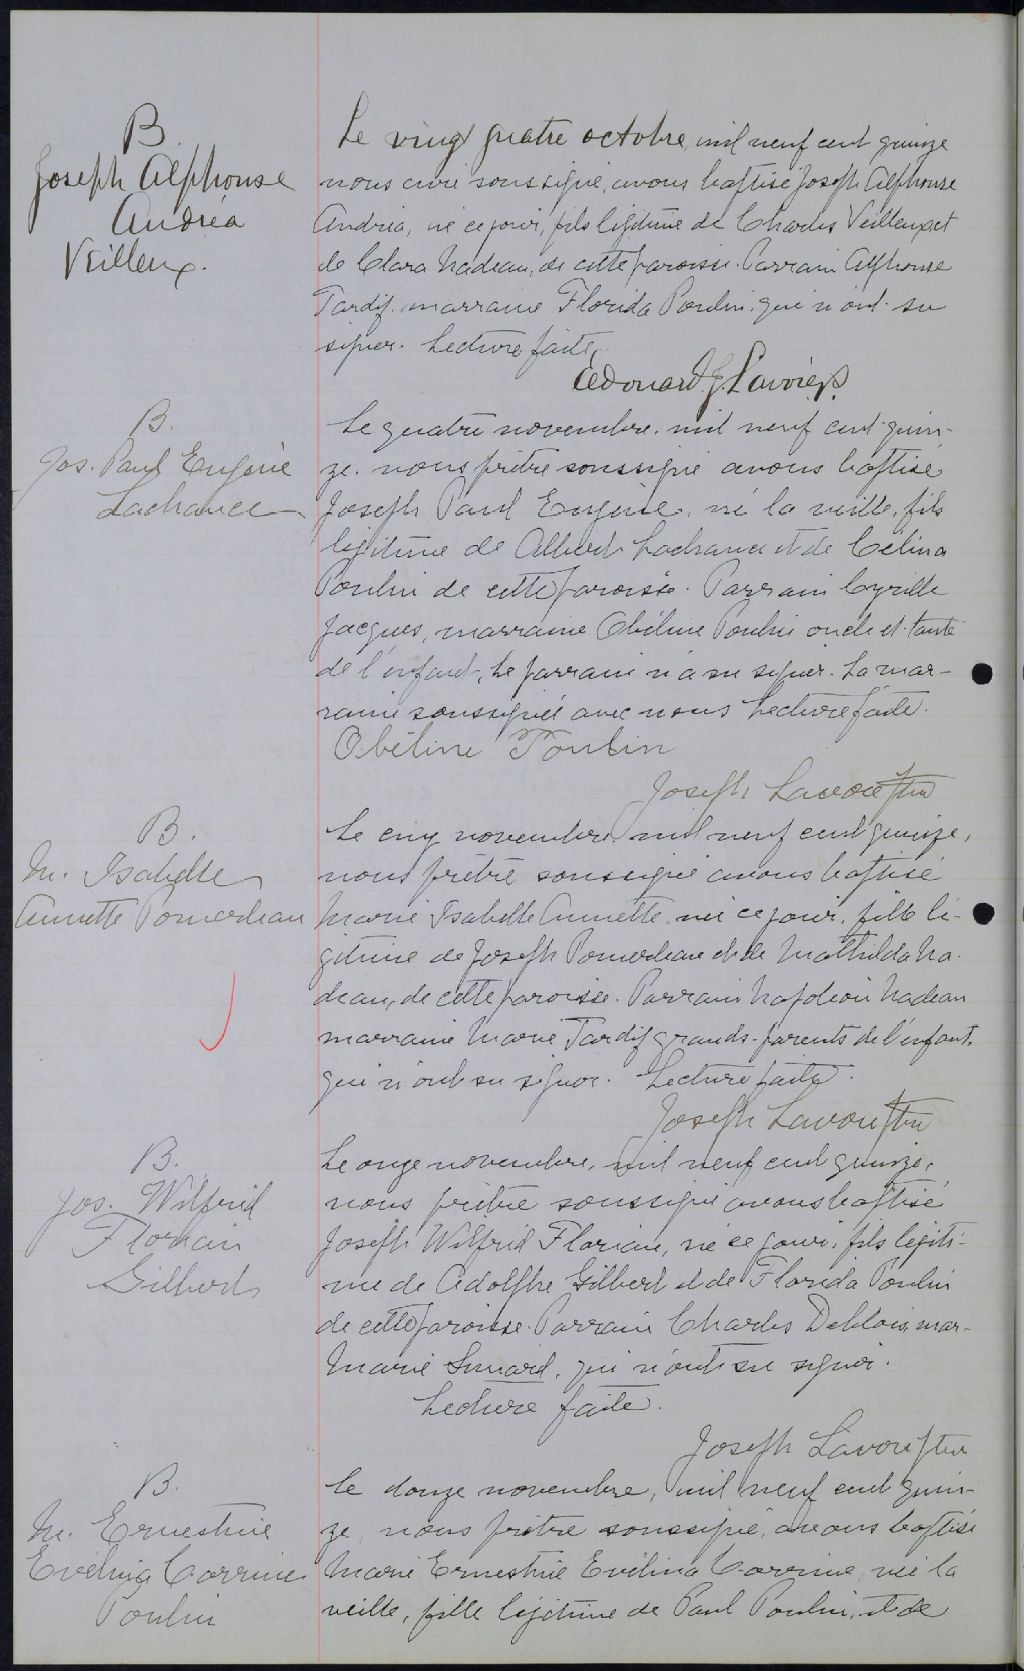 B.
Joseph Alphonse
Andréa
Veilleux.
Le vingt quatre octobre, mil neuf cent quinze
nous curé soussigné, avons baptisé Joseph Alphonse
Andréa, né ce jour, fils légitime de Charles Veilleux et
de Clara Nadeau, de cette paroisse. Parrain Alphonse
Tardif, marraine Florida Poulin, qui n'ont su
signer. Lecture faite.
Edouard J.
B.
Jos. Paul Eugène
Lachance
Le quatre novembre, mil neuf cent quin-
ze, nous prêtre soussigné avons baptisé
Joseph Paul Eugène, né la veille, fils
légitime de Albert Lachance et de Célina
Poulin de cette paroisse. Parrain Cyrille
Jacques, marraine Obéline Poulin oncle et tante
de l'enfant, Le parrain n'a su signer. La mar-
raine soussignée avec nous Lecture faite.
Obéline Poulin
Joseph Lavoie ptre
B.
M. Isabelle
Annette Pomerleau
Le cinq novembre, mil neuf cent quinze,
nous prêtre soussigné avons baptisé
Marie Isabelle Annette, née ce jour, fille lé-
gitime de Joseph Pomerleau et de Mathilda Na-
deau, de cette paroisse. Parrain Napoléon Nadeau
marraine Marie Tardif grands-parents de l'enfant,
qui n'ont su signer. Lecture faite.
Joseph Lavoie ptre
B.
Jos. Wilfrid
Florian
Gilbert
Le onze novembre, mil neuf cent quinze,
nous prêtre soussigné avons baptisé
Joseph Wilfrid Florian, né ce jour, fils légiti-
me de Adolphe Gilbert et de Florida Poulin
de cette paroisse. Parrain Charles Deblois, mar-
Marie Simard, qui n'ont su signer.
Lecture faite.
Joseph Lavoie ptre
B.
M. Ernestine
Evélina Corrine
Poulin
Le douze novembre, mil neuf cent quin-
ze, nous prêtre soussigné, avons baptisé
Marie Ernestine Evélina Corrine, née la
veille, fille légitime de Paul Poulin, et de